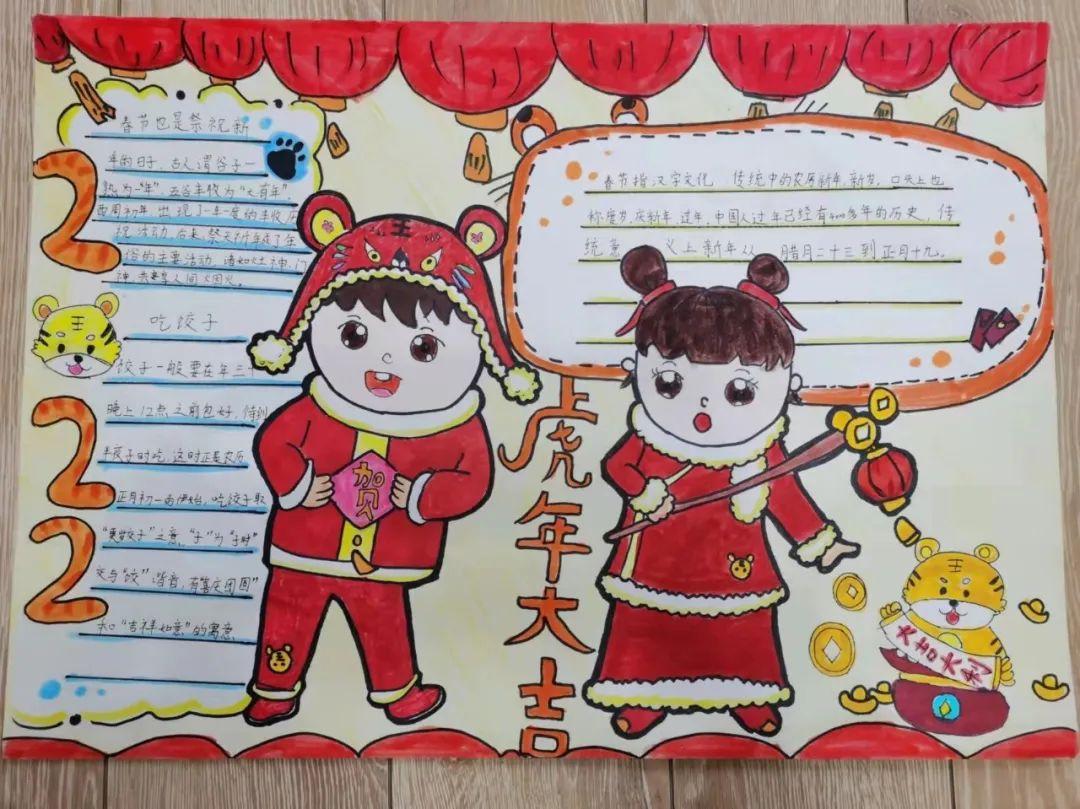 春节也是祭祝新
年的日子，古人谓谷子一
熟为一“年”，五谷丰收为“大有年”，
西周初年，出现了一年一度的丰收庆
祝活动，后来祭天祈年成了年
俗的主要活动，诸如灶神、门
神
人间烟火。
吃饺子
饺子一般要在年三十
晚上12点之前包好，待到
半夜子时吃，这时正是农历
正月初一的伊始，吃饺子取
“更岁交子”之意，“子”为“子时”
交与“饺”谐音，有“喜庆团圆”
和“吉祥如意”的寓意
2
2
2
王
贺
虎年大吉
春节指汉字文化 传统中的农历新年，新岁，口头上也
称度岁，庆新年，过年，中国人过年已经有4000多年的历史，传
统意 义上新年从 腊月二十三到正月十九。
王
大吉大利